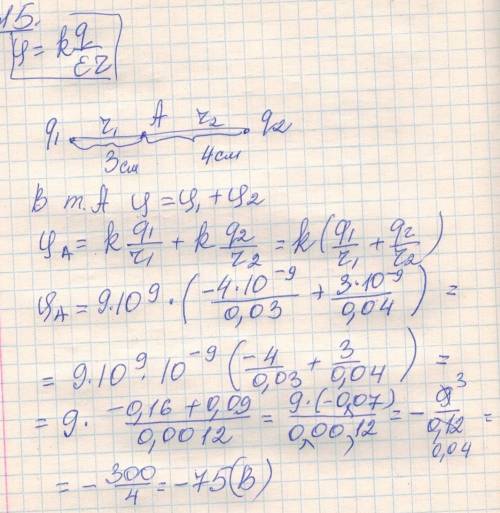 15.
φ = k q/εr
q₁ r₁ A r₂ q₂
3см 4см
В т. А φ = φ₁ + φ₂
φA = k q₁/r₁ + k q₂/r₂ = k(q₁/r₁ + q₂/r₂)
φA = 9·10⁹·(-4·10⁻⁹/0,03 + 3·10⁻⁹/0,04) =
= 9·10⁹·10⁻⁹(-4/0,03 + 3/0,04) =
= 9· -0,16 + 0,09/0,0012 = 9·(-0,07)/0,00,12 = - 9 3/0,12 0,04 =
= - 300/4 = -75(В)